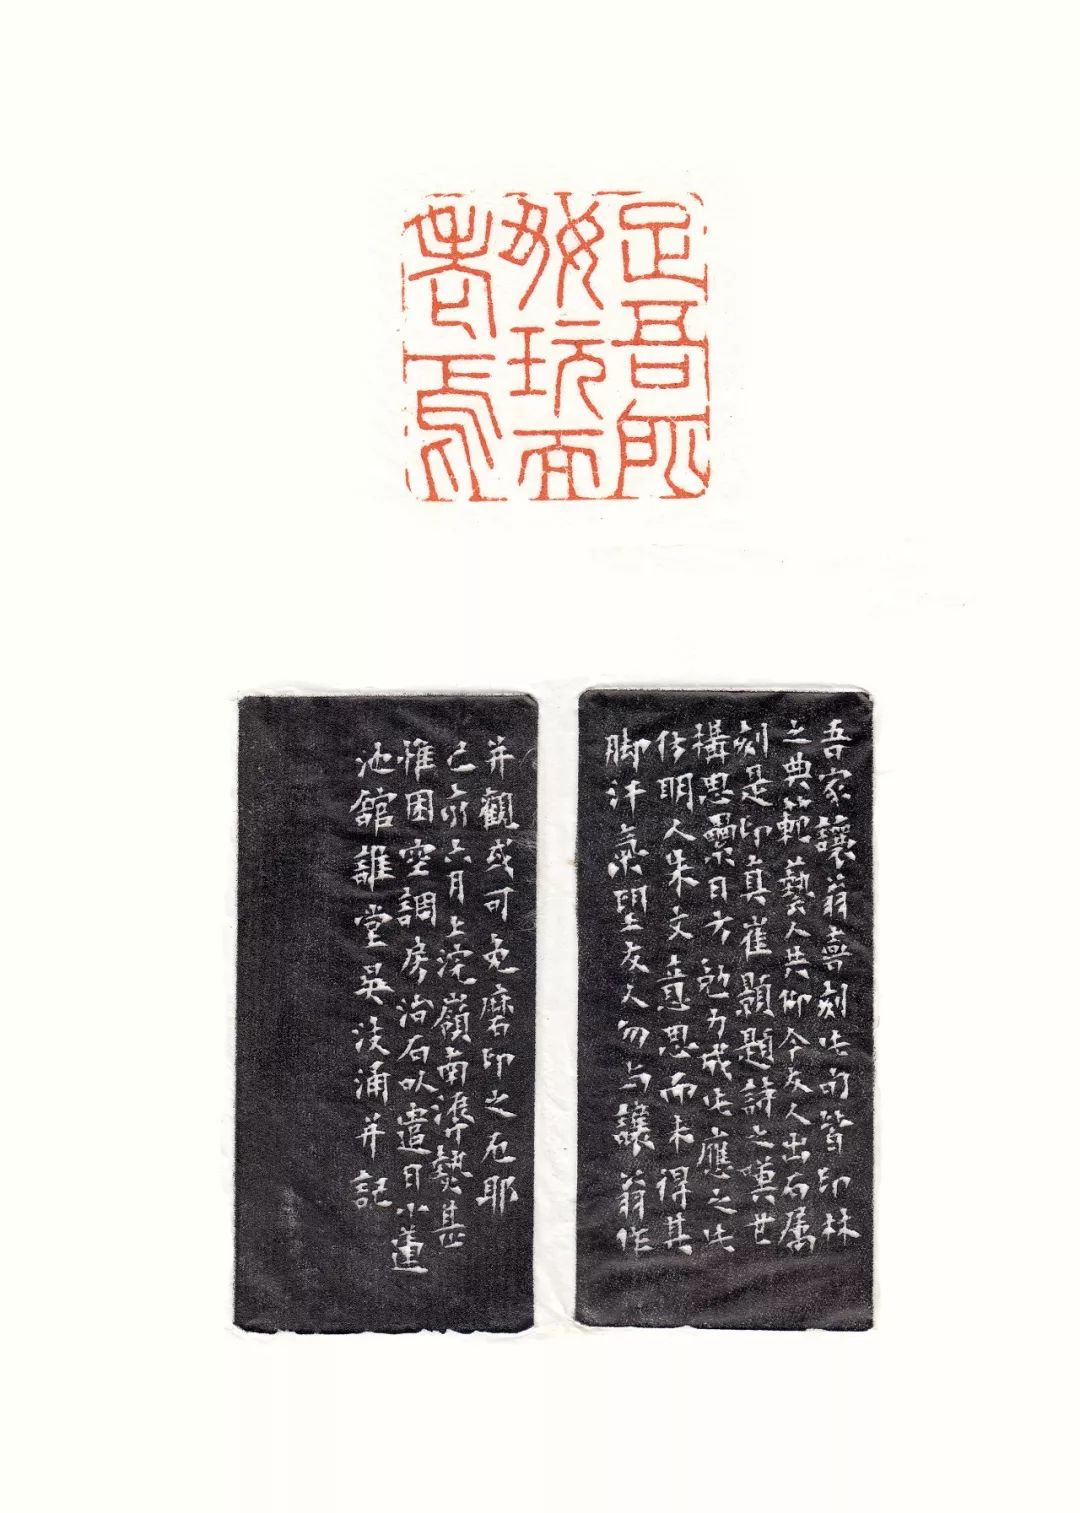 足吾所
好玩而
老焉
吾家讓翁喜刻此句皆印林
之典範藝人共仰今友人出石属
刻是印真崔顥題詩之嘆也
構思纍日方勉力成此應之此
仿明人朱文意思而未得其
脚汗氣望友人勿与讓翁作
并觀或可免磨印之厄耶
己亥六月上浣嶺南溽熱甚
惟困空調房治石以遣日小蓮
池館誰堂吳涌并記